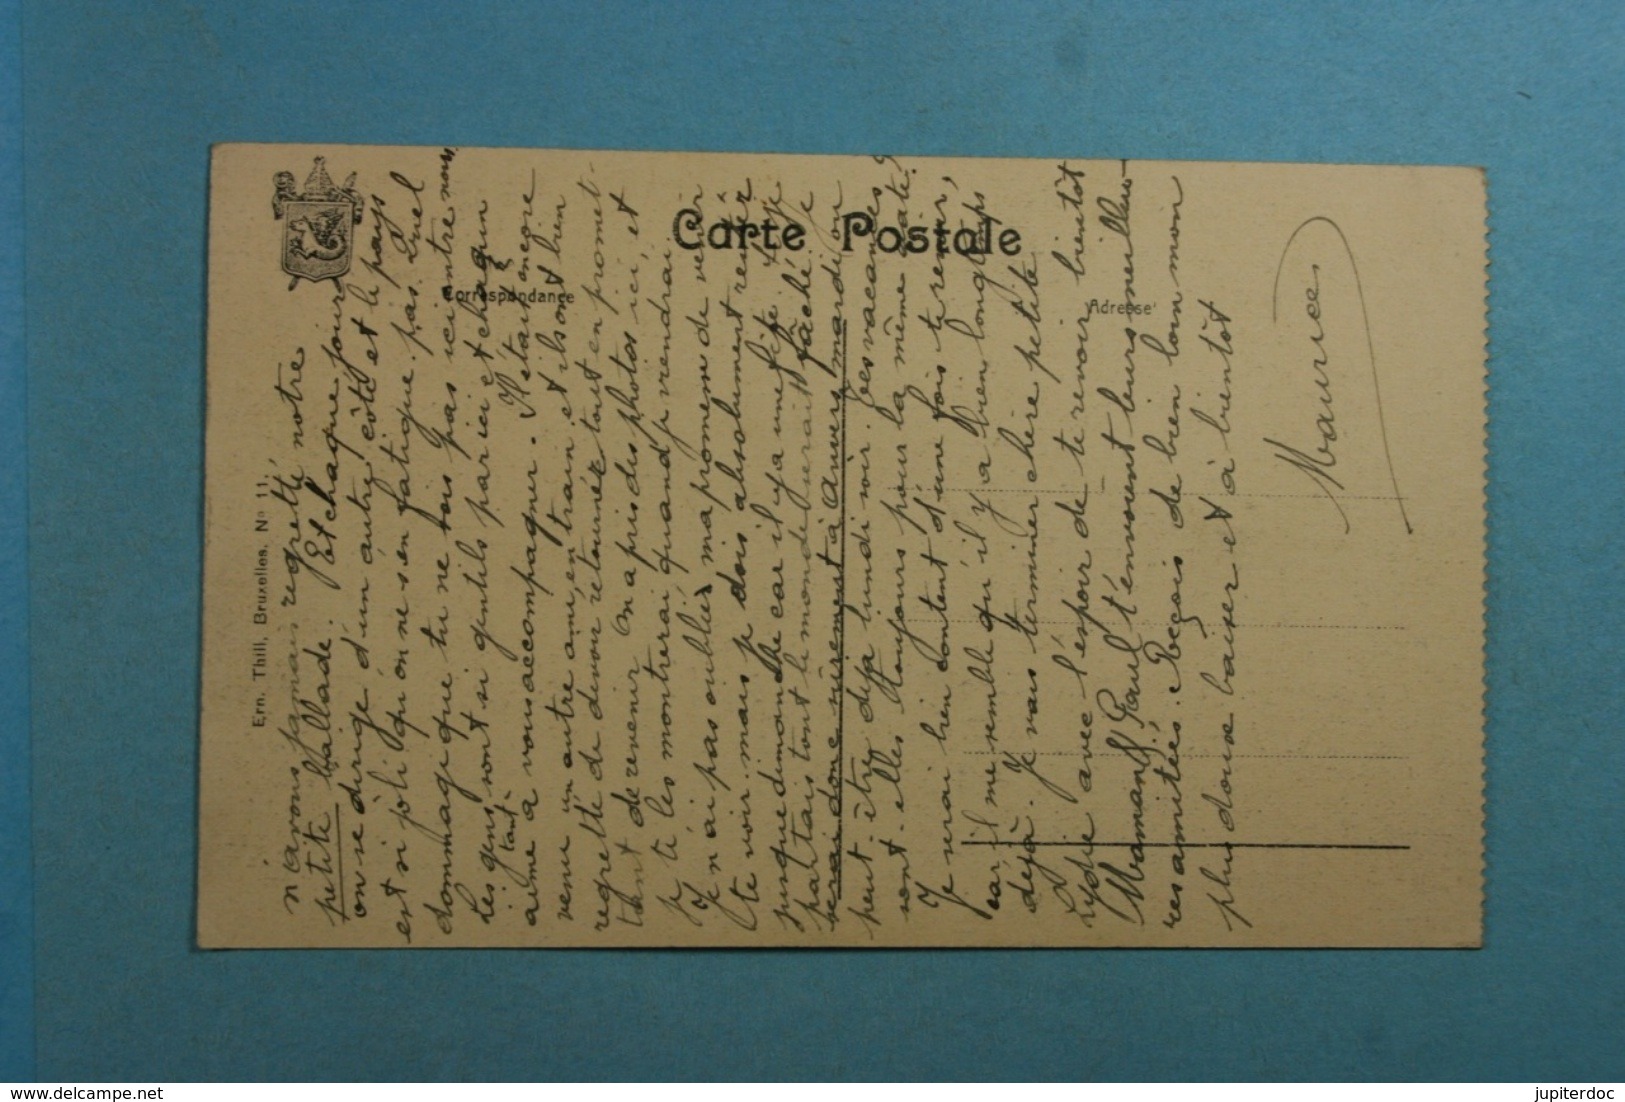 Carte Postale
Correspondance
Adresse
Ern. Thill, Bruxelles. No 11.
n'avons jamais regretté notre
petite ballade. Et chaque jour
on se dirige d'un autre côté et le pays
est si joli qu'on ne s'en fatigue pas. Quel
dommage que tu ne sois pas ici entre nous
les gens sont si gentils par ici et chacun
aime tant à vous accompagner. Il était encore
venu un autre ami en train et ils ont bien
regretté de devoir retourner tout en promet-
tant de revenir. On a pris des photos ici, et
je te les montrerai quand je viendrai.
Je n'ai pas oublié ma promesse de venir
te voir. mais je dois absolument rester
jusque dimanche car il y a une fête. Si je
partais tout le monde serait fâché. Je
serai donc sûrement à Anvers mardi ou
peut-être déjà lundi soir. Les vacances
sont-elles toujours pour la même date?
Je serai bien content d'une fois te revoir,
car il me semble qu'il y a bien longtemps
déjà. Je vais terminer chère petite
Lydie avec l'espoir de te revoir bientôt
Maman & Paul t'envoient leurs meilleu-
res amitiés. Reçois de bien loin mon
plus doux baiser et à bientôt
Maurice
https://www.delcampe.net
jupiterdoc